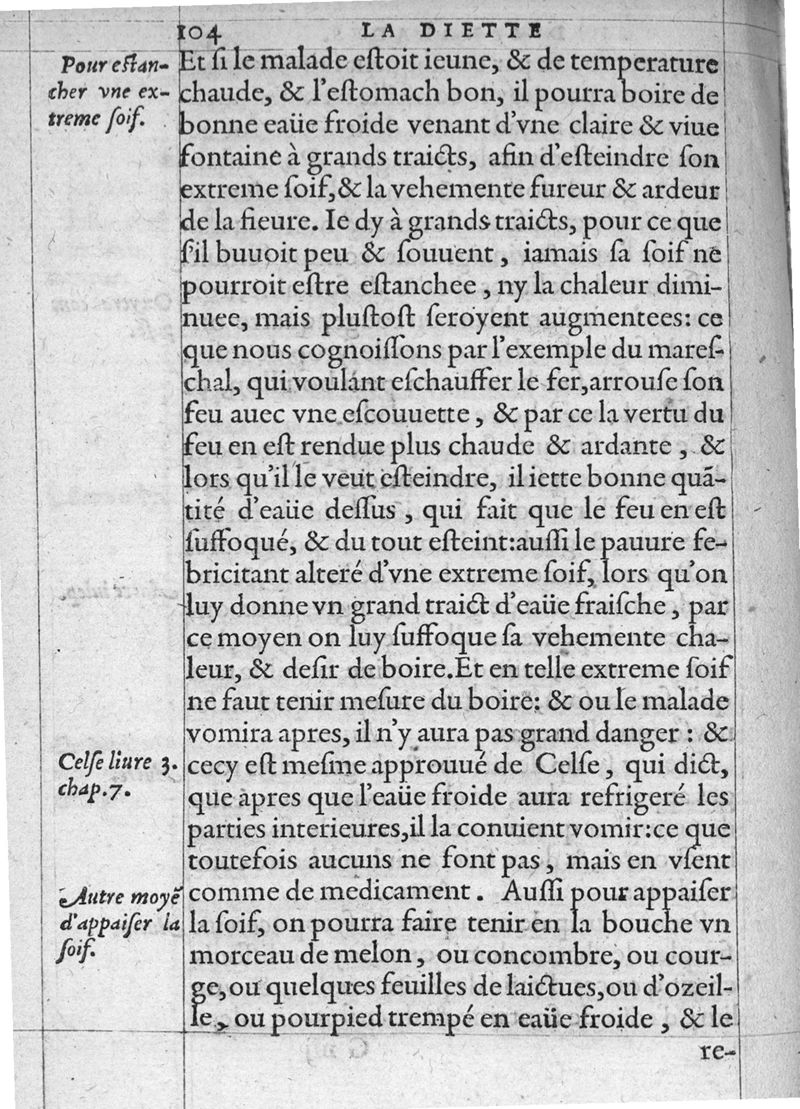 104 LA DIETTE
Pour eſtan-
cher vne ex-
treme ſoif.
Et ſi le malade eſtoit ieune, & de temperature
chaude, & l'eſtomach bon, il pourra boire de
bonne eaüe froide venant d'vne claire & viue
fontaine à grands traicts, afin d'eſteindre ſon
extreme ſoif, & la vehemente fureur & ardeur
de la fieure. Ie dy à grands traicts, pour ce que
ſ'il buuoit peu & ſouuent, iamais ſa ſoif ne
pourroit eſtre eſtanchee, ny la chaleur dimi-
nuee, mais pluſtoſt ſeroyent augmentees: ce
que nous cognoiſſons par l'exemple du mareſ-
chal, qui voulant eſchauffer le fer, arrouſe ſon
feu auec vne eſcouuette, & par ce la vertu du
feu en eſt rendue plus chaude & ardante, &
lors qu'il le veut eſteindre, il iette bonne quã-
tité d'eaüe deſſus, qui fait que le feu en eſt
ſuffoqué, & du tout eſteint: auſſi le pauure fe-
bricitant alteré d'vne extreme ſoif, lors qu'on
luy donne vn grand traict d'eaüe fraiſche, par
ce moyen on luy ſuffoque ſa vehemente cha-
leur, & deſir de boire. Et en telle extreme ſoif
ne faut tenir meſure du boire: & ou le malade
vomira apres, il n'y aura pas grand danger: &
Celſe liure 3.
chap. 7.
cecy eſt meſme approuué de Celſe, qui dict,
que apres que l'eaüe froide aura refrigeré les
parties interieures, il la conuient vomir: ce que
toutefois aucuns ne font pas, mais en vſent
Autre moyẽ
d'appaiſer la
ſoif.
comme de medicament. Auſſi pour appaiſer
la ſoif, on pourra faire tenir en la bouche vn
morceau de melon, ou concombre, ou cour-
ge, ou quelques feuilles de laictues, ou d'ozeil-
le, ou pourpied trempé en eaüe froide, & le
re-